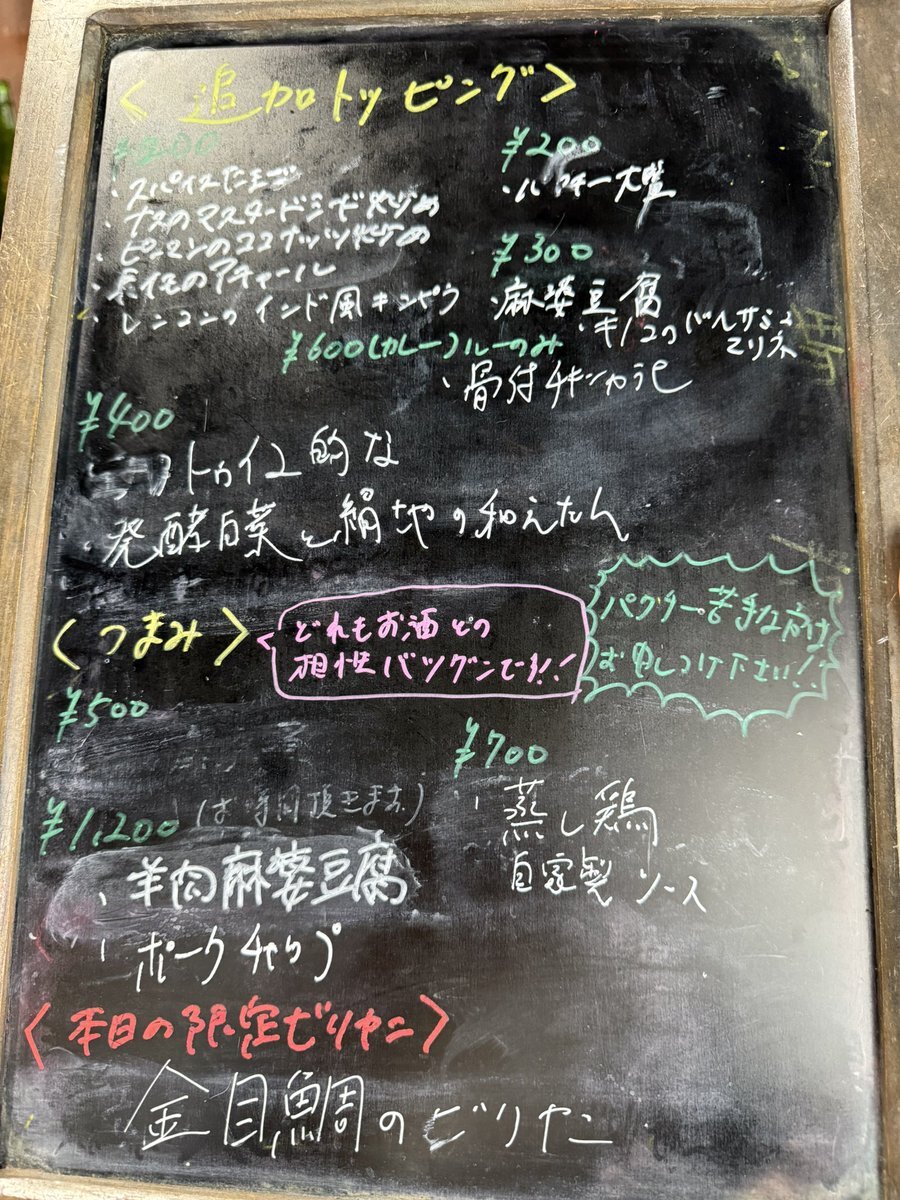 <追加トッピング>
¥200
・スパイスたまご
・ナスのマスタードシード炒め
・ピーマンのココナッツ炒め
・長芋のアチャール
・レンコンのインド風キンピラ
¥200
・パクチー大盛
¥300
・麻婆豆腐
・キノコのバルサミコ
マリネ
¥600(カレー)ルーのみ
・骨付チキンカラヒ
¥400
的な
・発酵白菜と の和えたん
<つまみ>
どれもお酒との
相性バツグンです!!
パクチー苦手な方は
お申しつけ下さい!!
¥500
¥700
・蒸し鶏
自家製ソース
¥1,200(お時間頂きます)
・羊肉麻婆豆腐
・ポークチャップ
<本日の限定ビリヤニ>
金目鯛のビリヤニ